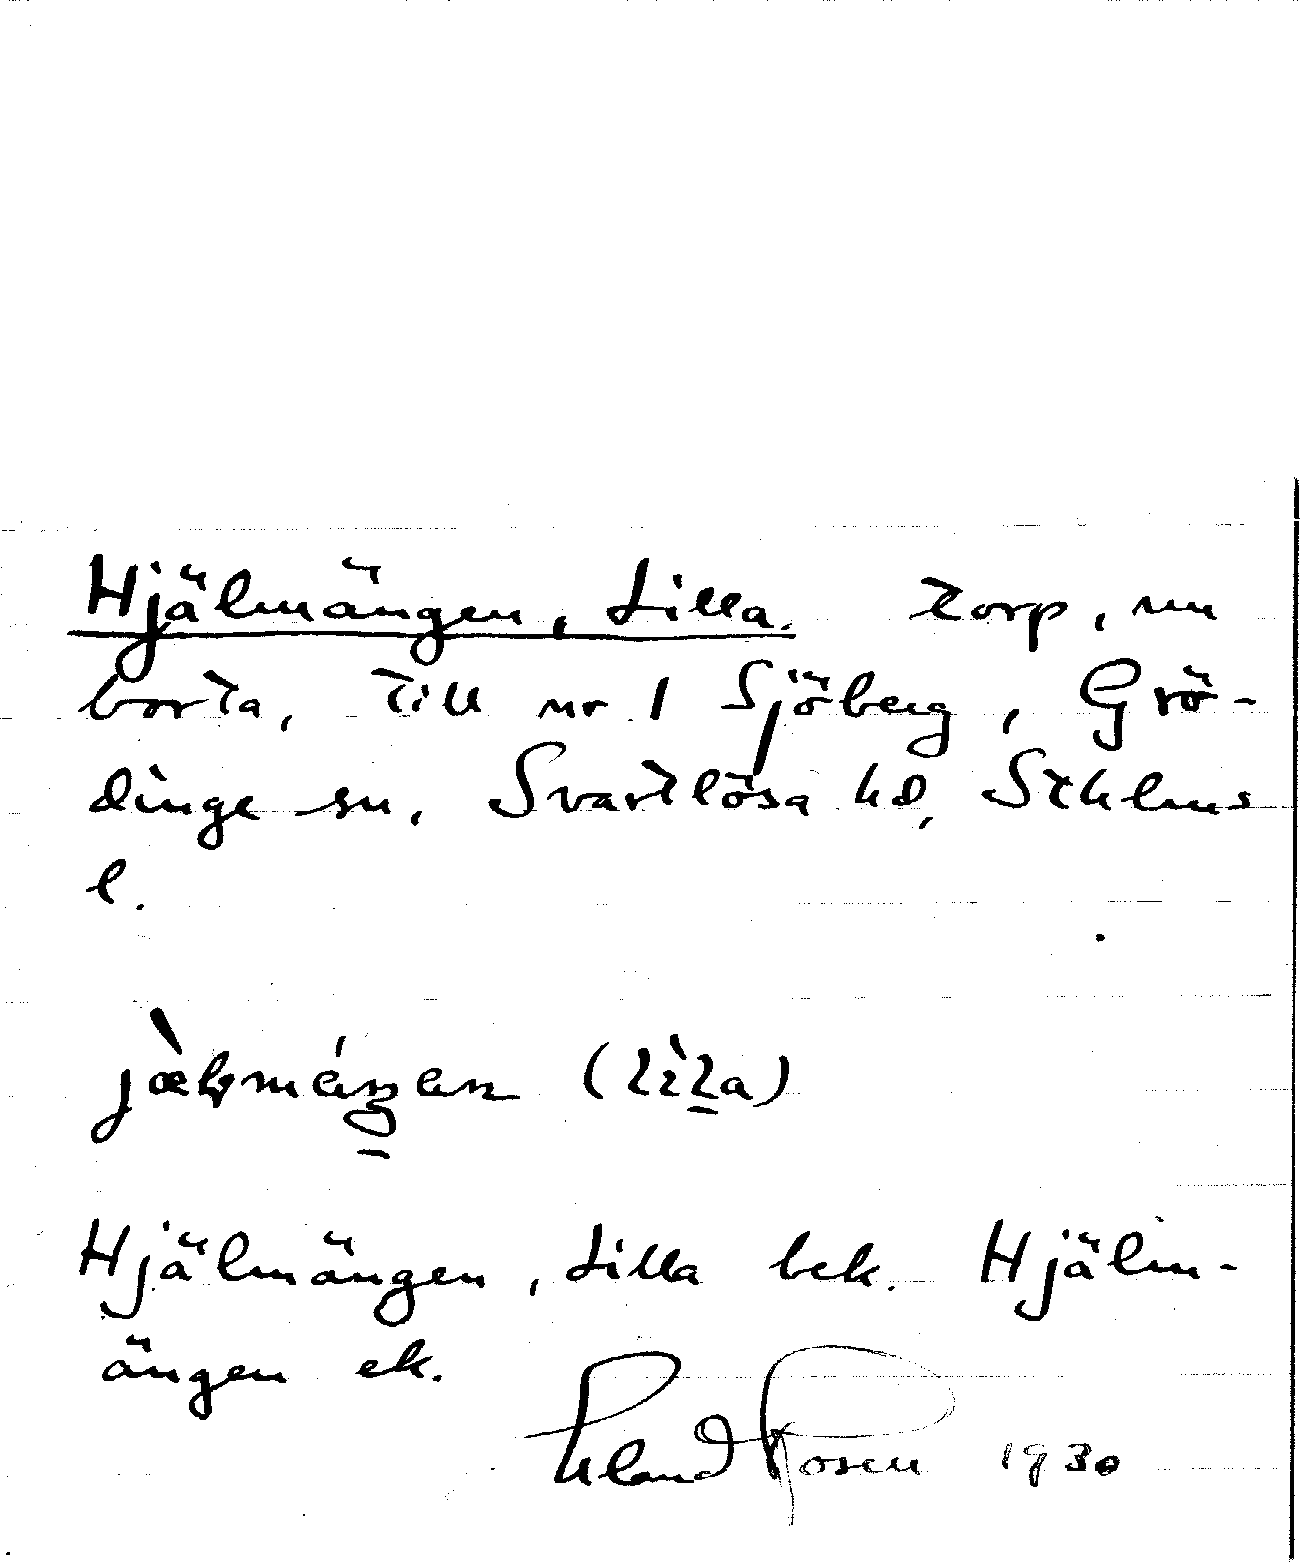 Hjälmängen, Lilla. Torp, nu
borta, till nr 1 Sjöberg, Grö-
dinge sn, Svartlösa hd, Sthlms
l.
(lìla)
Hjälmängen, Lilla bek. Hjälm-
ängen ek.
Rosen 1930